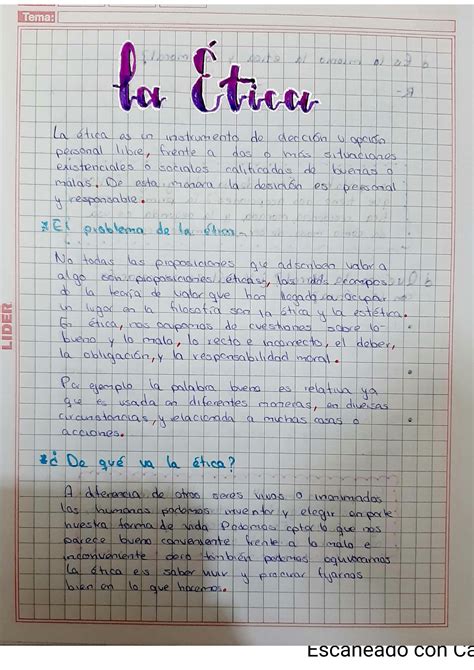 Tema:
la Ética
La ética es un instrumento de dección u opción
personal libre, frente a dos o más situaciones
existenciales o sociales calificadas de buenas o
malas. De esta manera la desición es personal
y responsable.
* El problema de la ética.-
No todas las proposiciones que adscriben valor a
algo son proposiciones éticas, los dos campos
de la teoría de valor que han llegado a ocupar
un lugar en la filosofía son la ética y la estética.
En ética, nos ocupamos de cuestiones sobre lo
bueno y lo malo, lo recto e incorrecto, el deber,
la obligación, y la responsabilidad moral.
Por ejemplo la palabra bueno es relativa ya
que es usada en diferentes maneras, en diversas
circunstancias, y relacionada a muchas cosas o
acciones.
* ¿De qué va la ética?
A diferencia de otros seres vivos o inanimados
los humanos podemos inventar y elegir en parte
nuestra forma de vida Podemos optar lo que nos
parece bueno conveniente frente a lo malo e
inconveniente pero también podemos equivocarnos
La ética es saber vivir y procurar fijarnos
bien en lo que hacemos.
LIDER
Escaneado con Ca